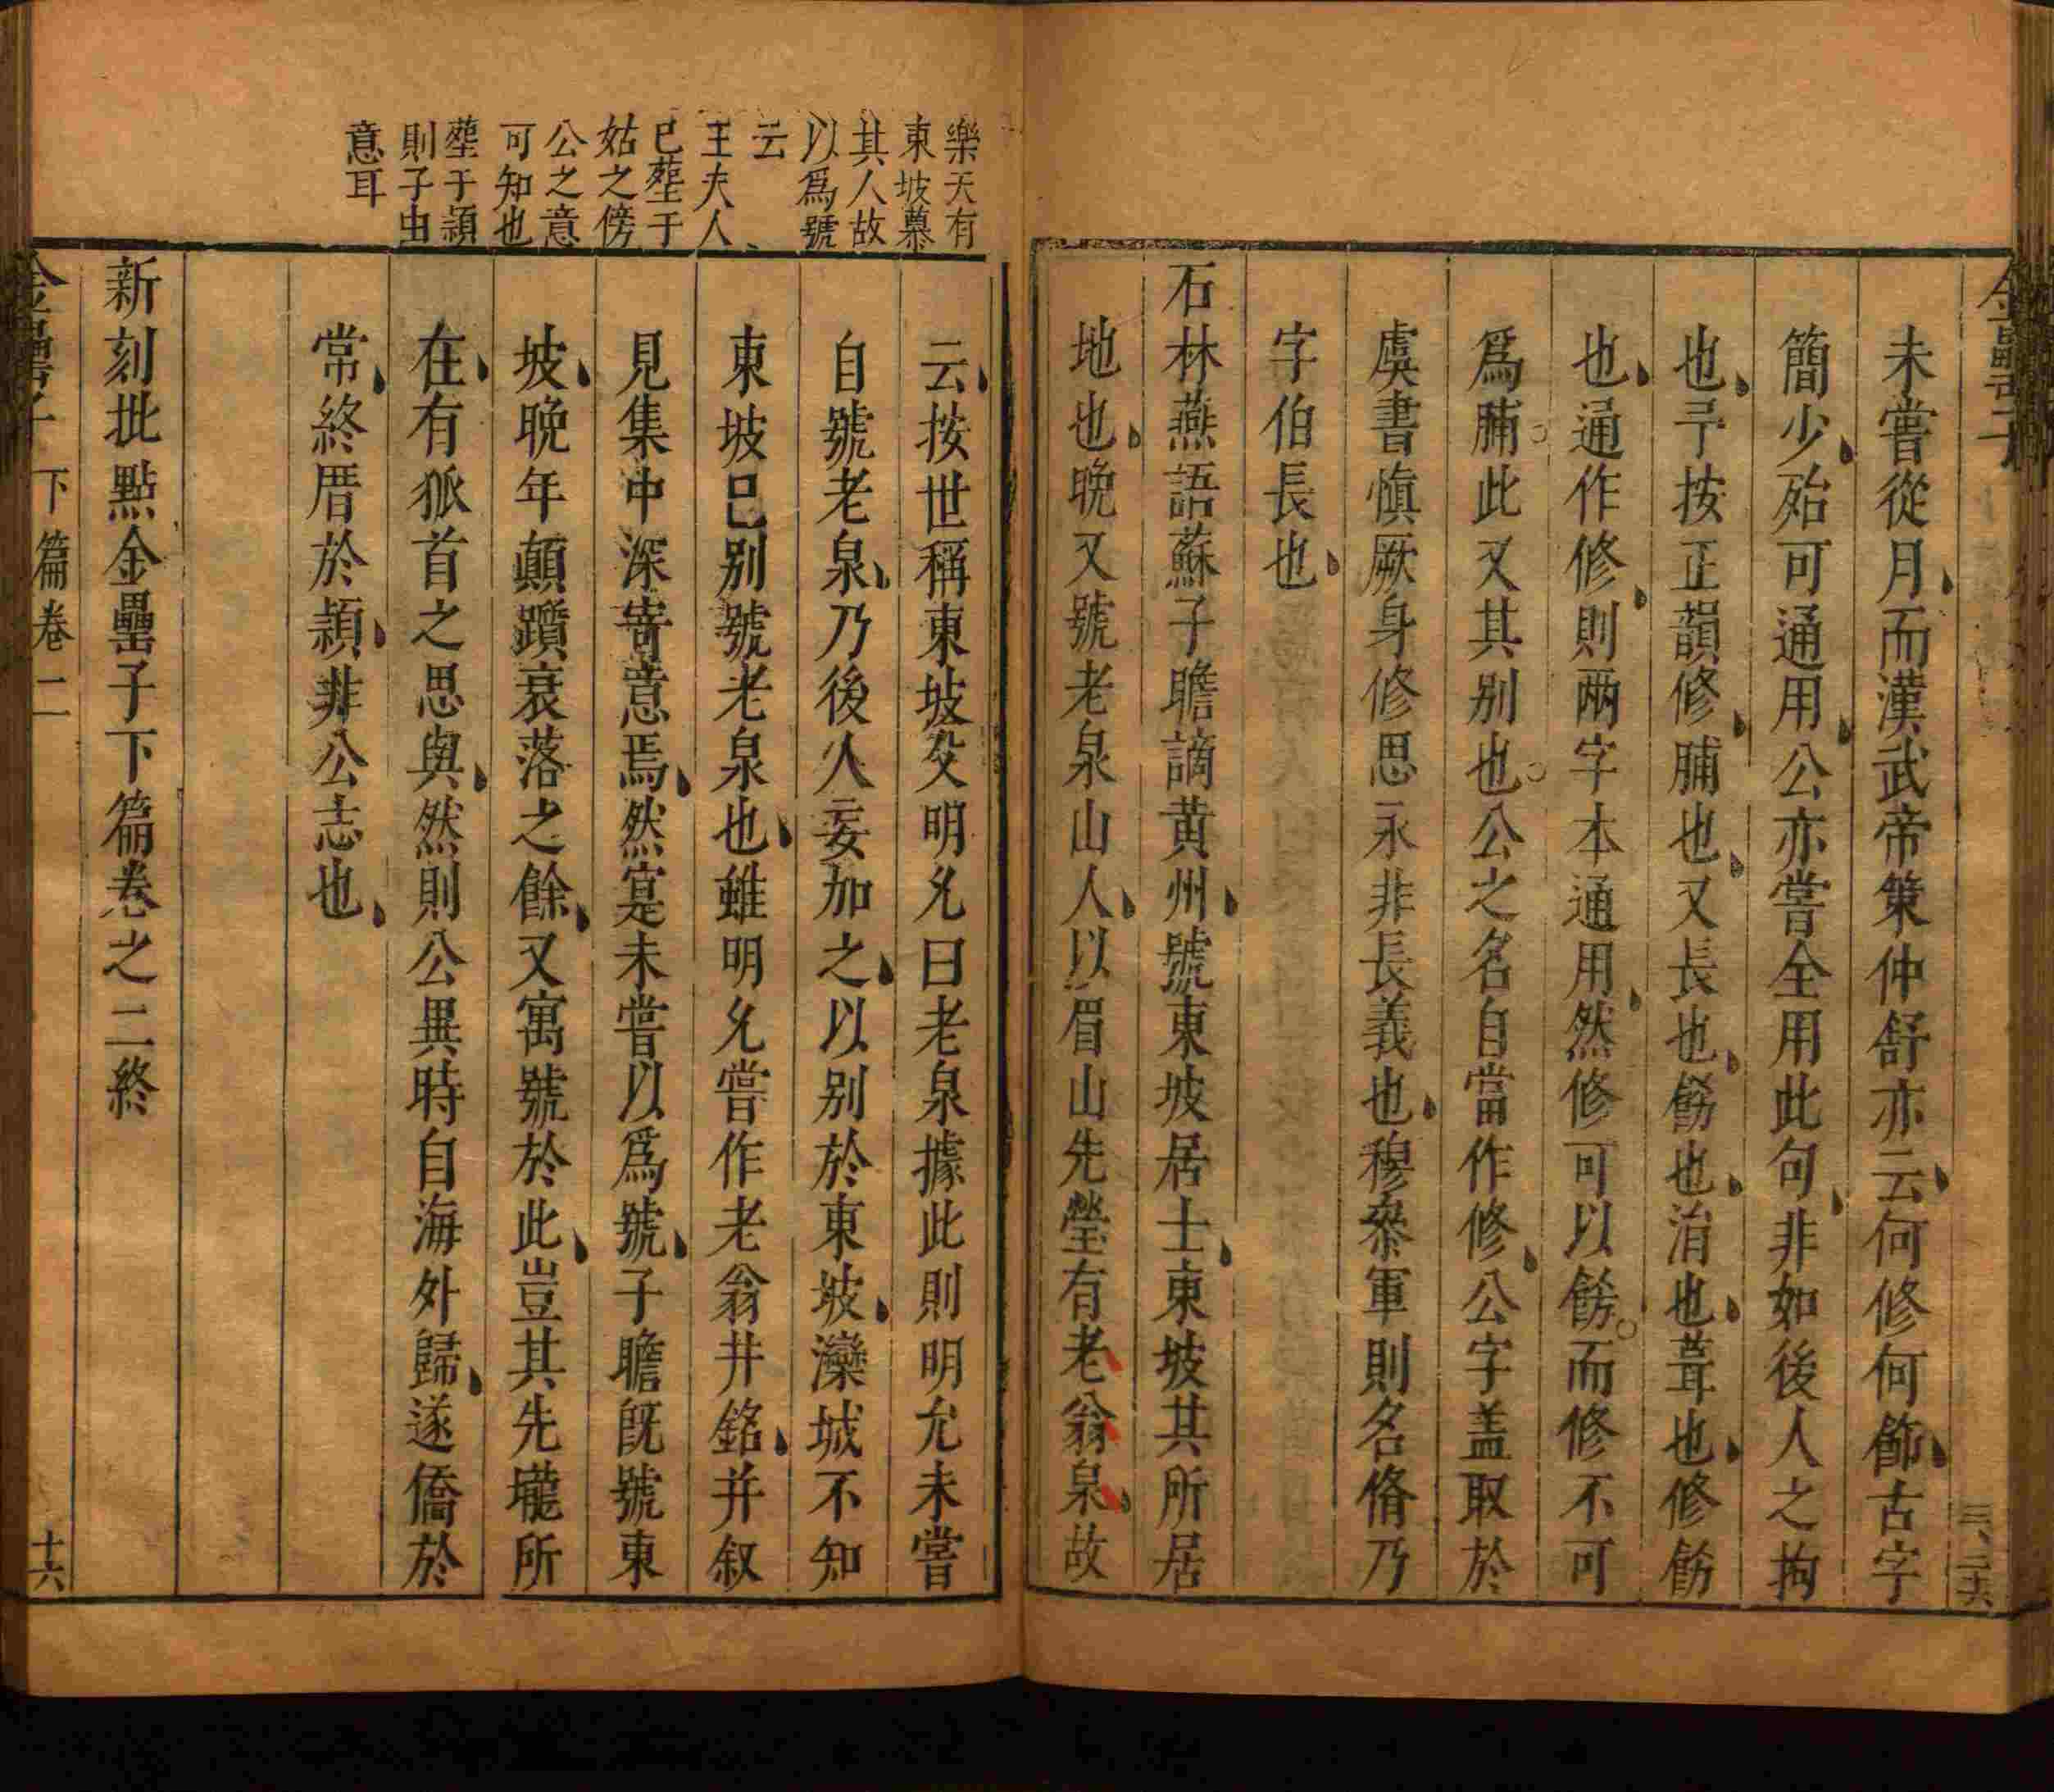 金罍子
未嘗從月而漢武帝策仲舒亦云何修何飾古字
簡少殆可通用公亦嘗全用此句非如後人之拘
也予按正韻修脯也又長也飾也治也葺也修飭
也通作修則兩字本通用然修可以飭而修不可
爲脯此又其别也公之名自當作修公字盖取於
虞書慎厥身修思永非長義也穆叅軍則名脩乃
字伯長也
石林燕語蘇子瞻謫黄州號東坡居士東坡其所居
地也晩又號老泉山人以眉山先塋有老翁泉故
樂天有
東坡慕
其人故
以爲號
云
王夫人
已塟于
姑之傍
公之意
可知也
塟于潁
則子由
意耳
云按世稱東坡父明允曰老泉據此則明允未嘗
自號老泉乃後人妄加之以别於東坡灤城不知
東坡已别號老泉也雖明允嘗作老翁井銘并叙
見集中深寄意焉然寔未嘗以爲號子瞻旣號東
坡晩年顛躓衰落之餘又寓號於此豈其先壠所
在有狐首之思與然則公異時自海外歸遂僑於
常終厝於潁非公志也
新刻批點金罍子下篇卷之二終
金罍子 下篇卷二 十六